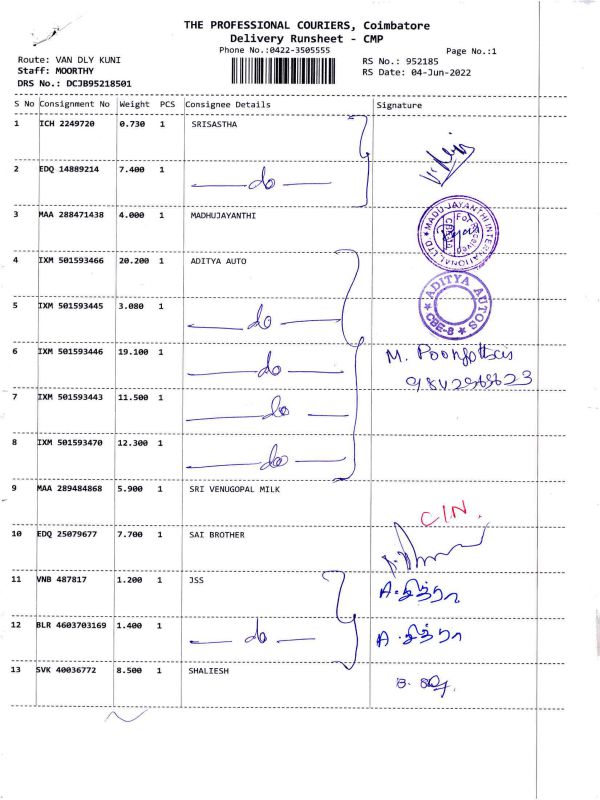 THE PROFESSIONAL COURIERS, Coimbatore
Delivery Runsheet - CMP
Phone No.:0422-3505555
Page No.:1
Route: VAN DLY KUNI
RS No.: 952185
Staff: MOORTHY
RS Date: 04-Jun-2022
DRS No.: DCJB95218501
S No Consignment No Weight PCS Consignee Details Signature
1 ICH 2249720 0.730 1 SRISASTHA
2 EDQ 14889214 7.400 1 do
3 MAA 288471438 4.000 1 MADHUJAYANTHI
MADU JAYANTHI INTERNATIONAL LTD.
4 IXM 501593466 20.200 1 ADITYA AUTO
ADITYA AUTOS
CBE-8
5 IXM 501593445 3.080 1 do
6 IXM 501593446 19.100 1 do M.
7 IXM 501593443 11.500 1 do
8 IXM 501593470 12.300 1 do
9 MAA 289484868 5.900 1 SRI VENUGOPAL MILK
C/N.
10 EDQ 25079677 7.700 1 SAI BROTHER
11 VNB 487817 1.200 1 JSS A. சித்ரா
12 BLR 4603703169 1.400 1 do A. சித்ரா
13 SVK 40036772 8.500 1 SHALIESH